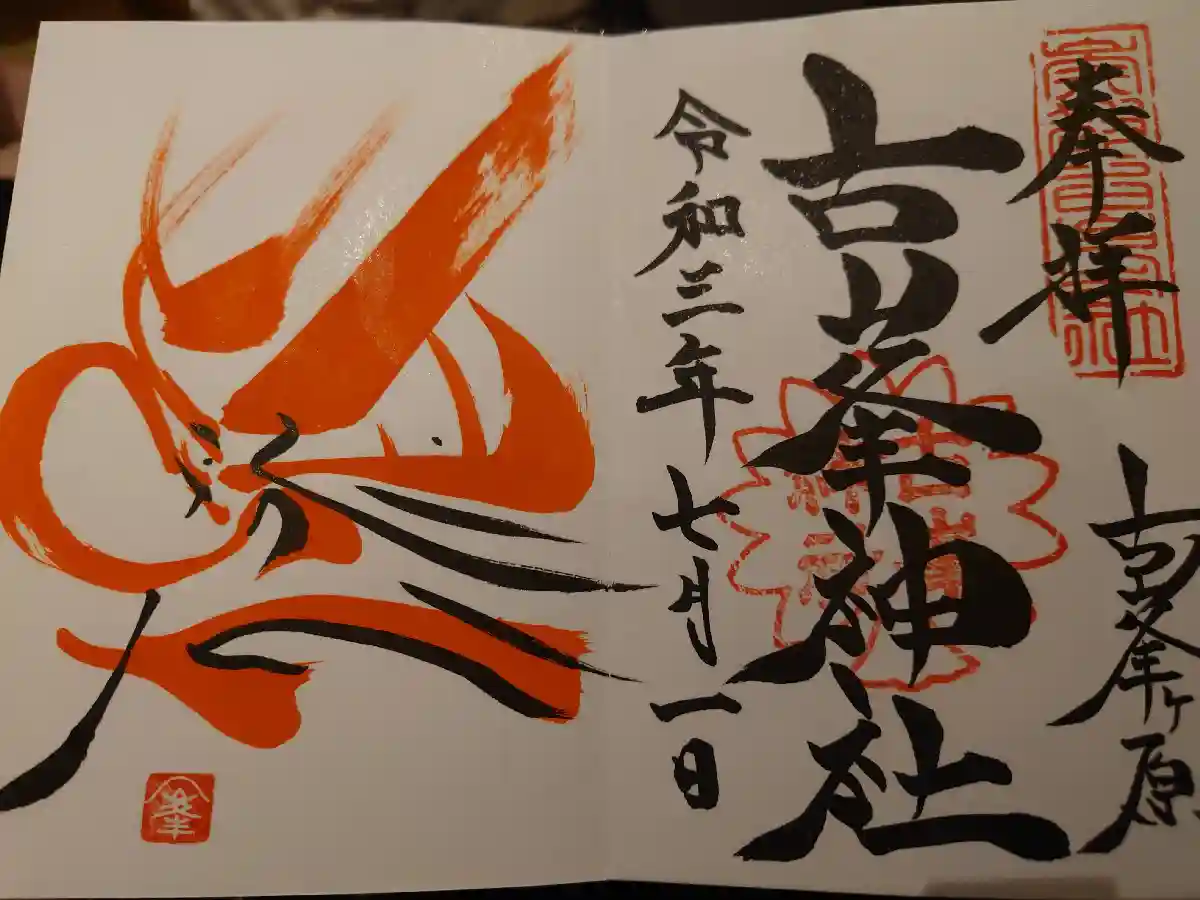 奉拝
古峯ヶ原
古峯神社
令和三年七月一日